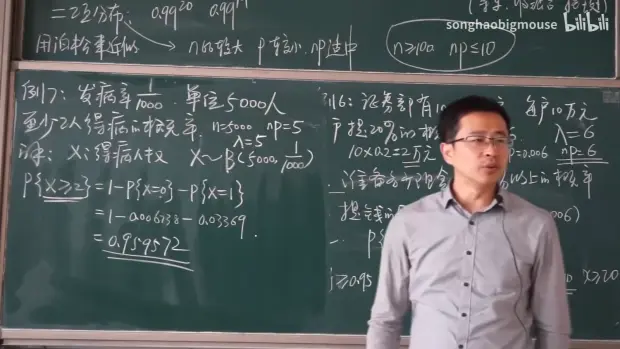 songhaobigmouse bilibili
=二项分布: 0.99²⁰ 0.99¹⁹
用泊松来近似 n比较大 p较小 np适中 n≥100 np≤10
例17: 发病率 1/1000. 单位5000人
至少2人得病的概率. n=5000 np=5
λ=5
解: X:得病人数 X~B(5000, 1/1000)
P{X≥2}=1-P{X=0}-P{X=1}
=1-0.006738-0.03369
=0.959572.
例16: 证券部有10 每户10万元
提20%的概 =0.006
λ=6
np=6
10×0.2=2万元
准备 以上的概率
提钱
P{
≥0.95 X≥20